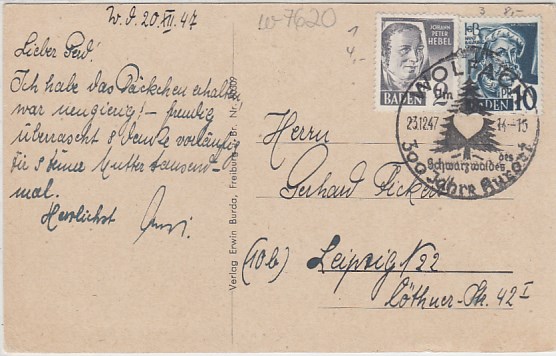 W. d. 20 XII. 47
Lieber Gerd!
Ich habe das Päckchen erhalten
war neugierig! – freudig
überrascht & danke vorläufig
dir & deiner Mutter tausend-
mal.
Herzlichst
Verlag Erwin Burda, Freiburg i. Br. Nr.
W-7620
1
4,-
3 8,-
JOHANN
PETER
HEBEL
BADEN
2
10
BADEN
WOLFACH
23.12.47
14-15
des
Schwarzwaldes
300 Jahre Kurort
Herrn
Gerhard
(10b) Leipzig N22
Cöthner-Str. 42 I